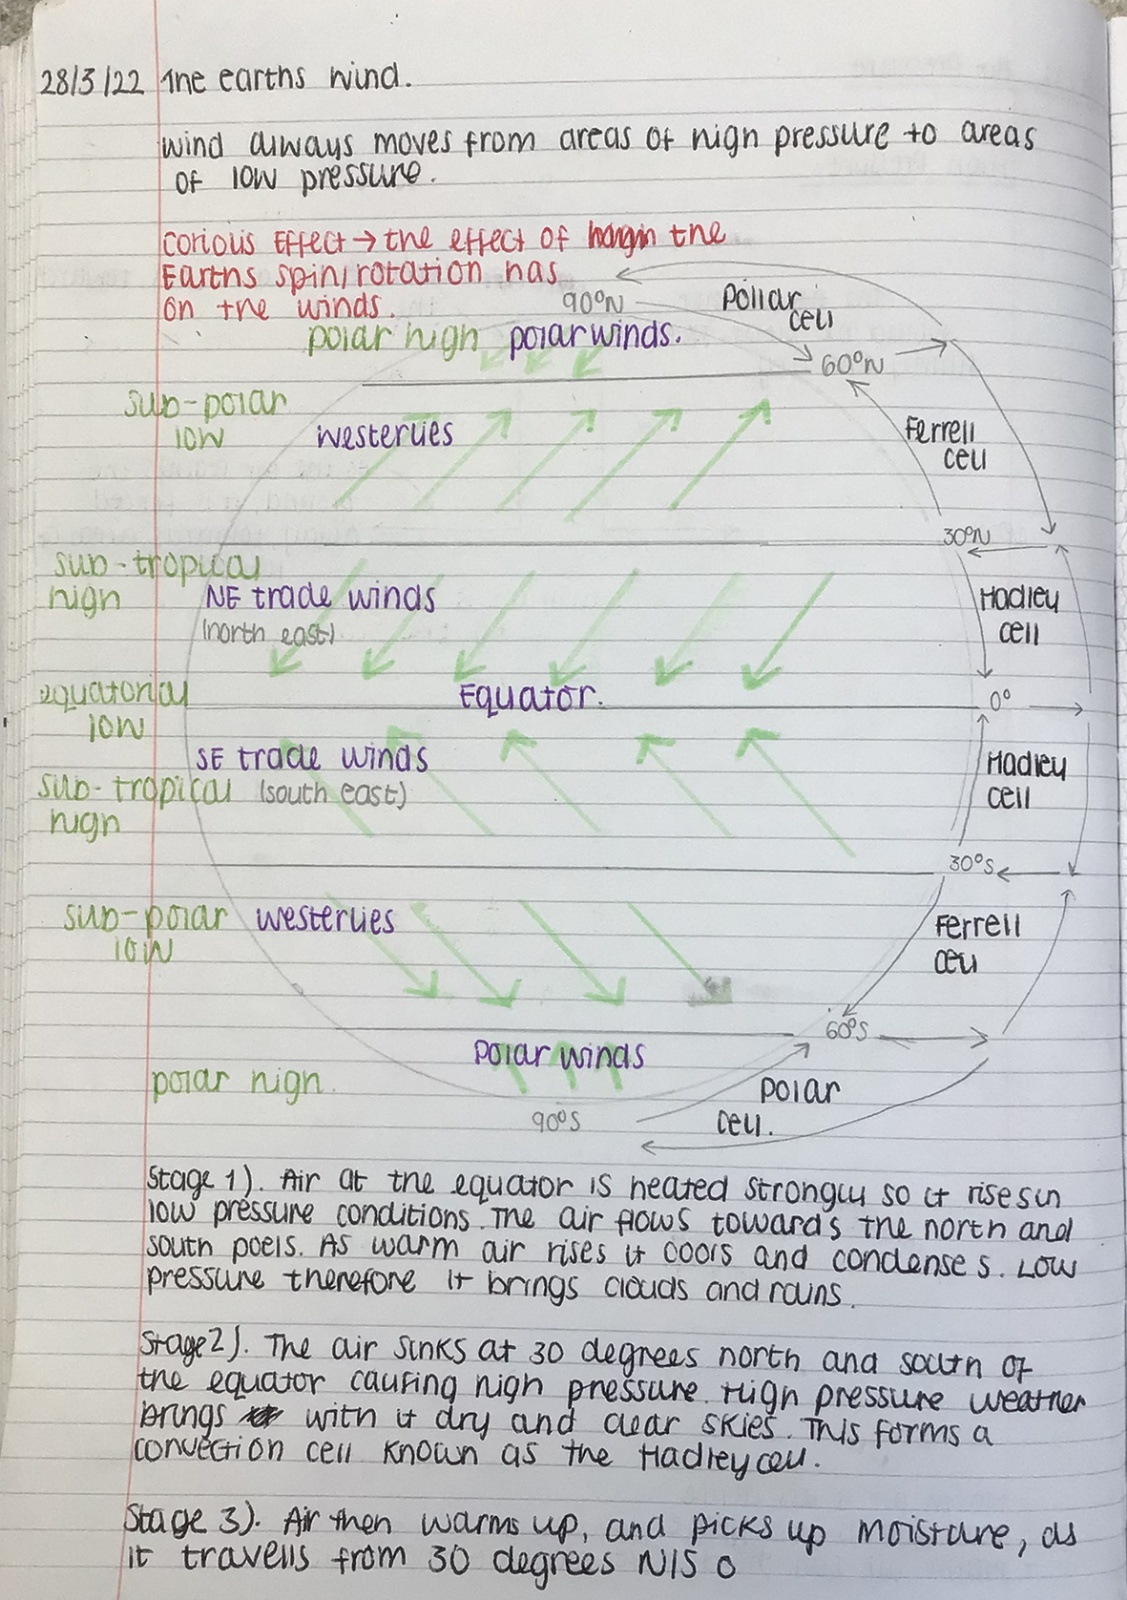 28/3/22 The earths wind.
wind always moves from areas of high pressure to areas
of low pressure.
Corious Effect → the effect of the
Earths spin/rotation has
on the winds.
90°N
Pollar
cell
polar high polar winds.
60°N
sub-polar
low
westerlies
Ferrell
cell
30°N
sub-tropical
high
NE trade winds
(north east)
Hadley
cell
equatorial
low
Equator.
0°
SE trade winds
sub-tropical (south east)
high
Hadley
cell
30°S
sub-polar westerlies
low
Ferrell
cell
60°S
Polar winds
polar high.
polar
cell.
90°S
Stage 1). Air at the equator is heated strongly so it rises in
low pressure conditions. The air flows towards the north and
south poels. As warm air rises it cools and condenses. Low
pressure therefore it brings clouds and rains.
Stage 2). The air sinks at 30 degrees north and south of
the equator causing high pressure. High pressure weather
brings with it dry and clear skies. This forms a
convection cell known as the Hadley cell.
Stage 3). Air then warms up, and picks up moisture, as
it travells from 30 degrees N/S o